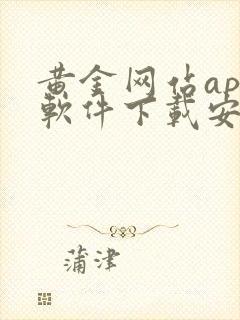 黄金网站ap
軟件下載安
蒲津